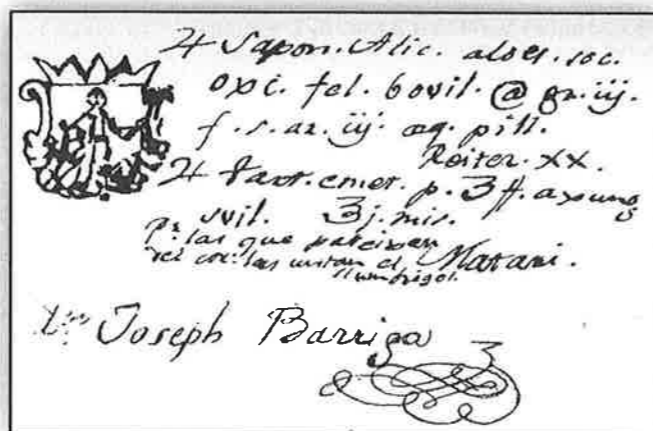 ♃ Sapon. Alic. aloes. soc.
opt. fel. bovil. @ gr. iij.
f. s. ar. iij. æq. pill.
Reiter. XX.
♃ tart. emet. p. ʒ ſſ. axung
suil. ℥j. mis.
Pr. las que
del untan el
Matani.
Joseph Barriga